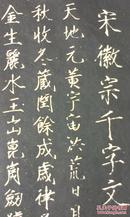 宋徽宗千字文
天地元黄宇宙洪荒日月
秋收冬藏閏餘成歲律
金生麗水玉出崑岡劍號